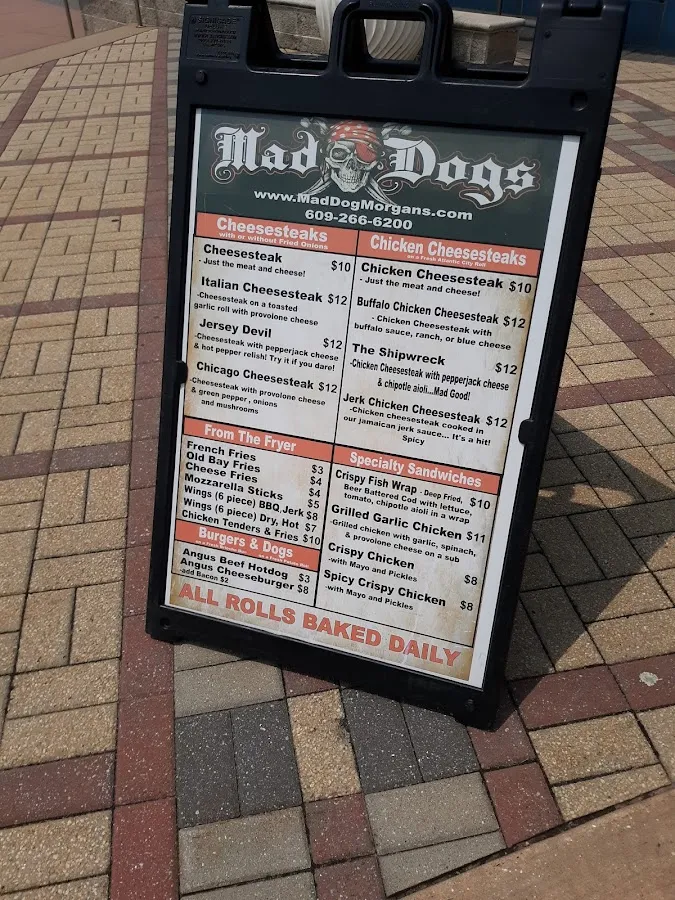 Mad Dogs
www.MadDogMorgans.com
609-266-6200
Cheesesteaks
with or without Fried Onions
Cheesesteak $10
- Just the meat and cheese!
Italian Cheesesteak $12
-Cheesesteak on a toasted
garlic roll with provolone cheese
Jersey Devil $12
-Cheesesteak with pepperjack cheese
& hot pepper relish! Try it if you dare!
Chicago Cheesesteak $12
-Cheesesteak with provolone cheese
& green pepper, onions
and mushrooms
Chicken Cheesesteaks
on a Fresh Atlantic City Roll
Chicken Cheesesteak $10
- Just the meat and cheese!
Buffalo Chicken Cheesesteak $12
- Chicken Cheesesteak with
buffalo sauce, ranch, or blue cheese
The Shipwreck $12
-Chicken Cheesesteak with pepperjack cheese
& chipotle aioli...Mad Good!
Jerk Chicken Cheesesteak $12
-Chicken cheesesteak cooked in
our jamaican jerk sauce... It's a hit!
Spicy
From The Fryer
French Fries $3
Old Bay Fries $4
Cheese Fries $4
Mozzarella Sticks $5
Wings (6 piece) BBQ,Jerk $8
Wings (6 piece) Dry, Hot $7
Chicken Tenders & Fries $10
Burgers & Dogs
Angus Beef Hotdog $3
Angus Cheeseburger $8
-add Bacon $2
Specialty Sandwiches
Crispy Fish Wrap - Deep Fried, $10
Beer Battered Cod with lettuce,
tomato, chipotle aioli in a wrap
Grilled Garlic Chicken $11
-Grilled chicken with garlic, spinach,
& provolone cheese on a sub
Crispy Chicken $8
-with Mayo and Pickles
Spicy Crispy Chicken $8
-with Mayo and Pickles
ALL ROLLS BAKED DAILY